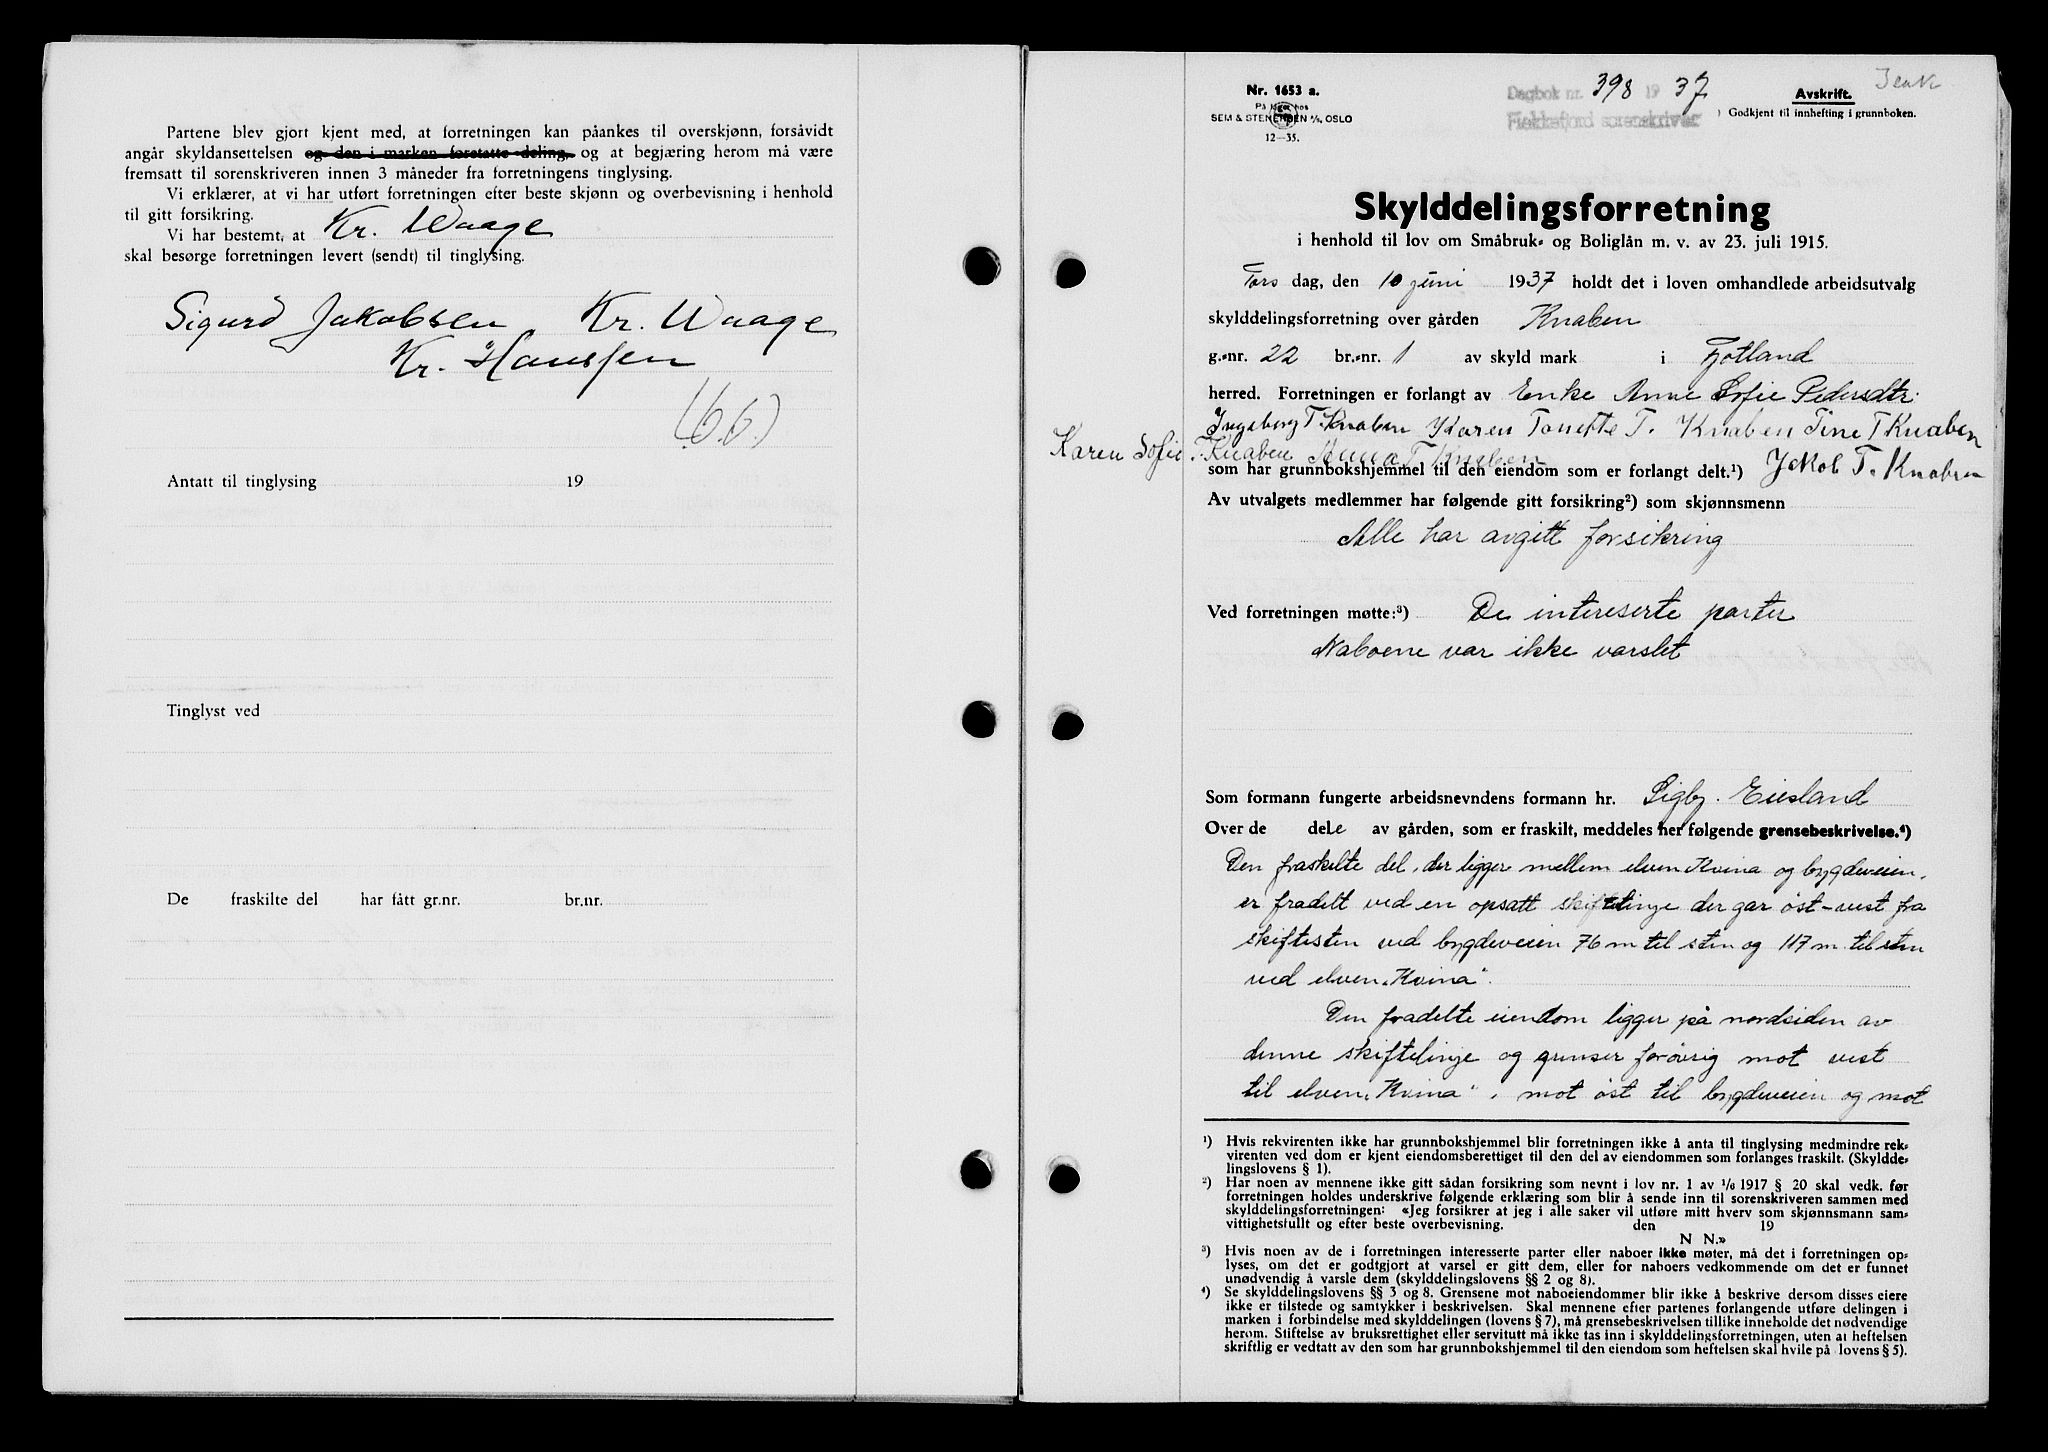 Partene blev gjort kjent med, at forretningen kan påankes til overskjønn, forsåvidt
angår skyldansettelsen og den i marken foretatte deling, og at begjæring herom må være
fremsatt til sorenskriveren innen 3 måneder fra forretningens tinglysing.
Vi erklærer, at vi har utført forretningen efter beste skjønn og overbevisning i henhold
til gitt forsikring.
Vi har bestemt, at Kr. Waage
skal besørge forretningen levert (sendt) til tinglysing.
Sigurd Jakobsen Kr. Waage
Kr. Hanssen
(6.6.)
Antatt til tinglysing 19
Tinglyst ved
De fraskilte del har fått gr.nr. br.nr.
Nr. 1653 a.
På lager hos
SEM & STENERSEN A/S, OSLO
12—35.
Dagbok nr. 398 19 37
Flekkefjord sorenskriveri
Avskrift.
Godkjent til innhefting i grunnboken.
Skylddelingsforretning
i henhold til lov om Småbruk- og Boliglån m. v. av 23. juli 1915.
Tors dag, den 10 juni 1937 holdt det i loven omhandlede arbeidsutvalg
skylddelingsforretning over gården Knaben
g.-nr. 22 br.-nr. 1 av skyld mark i Fjotland
herred. Forretningen er forlangt av Enke Anne Sofie Pedersdtr.
Ingeborg T. Knaben Karen Tonette T. Knaben Tine T Knaben
Karen Sofie T. Knaben Anna T Knaben
som har grunnbokshjemmel til den eiendom som er forlangt delt.¹) Jakob T. Knaben
Av utvalgets medlemmer har følgende gitt forsikring²) som skjønnsmenn
Alle har avgitt forsikring
Ved forretningen møtte:³) De intereserte parter
Naboene var ikke varslet
Som formann fungerte arbeidsnevndens formann hr. Sigbj. Eiesland
Over de dele av gården, som er fraskilt, meddeles her følgende grensebeskrivelse.⁴)
Den fraskilte del, der ligger mellem elven Kvina og bygdeveien,
er fradelt ved en opsatt skiftelinje der går öst-vest fra
skiftesten ved bygdeveien 76 m til sten og 117 m til sten
ved elven „Kvina".
Den fradelte eiendom ligger på nordsiden av
denne skiftelinje og grenser forövrig mot vest
til elven „Kvina", mot öst til bygdeveien og mot
¹) Hvis rekvirenten ikke har grunnbokshjemmel blir forretningen ikke å anta til tinglysing medmindre rek-
virenten ved dom er kjent eiendomsberettiget til den del av eiendommen som forlanges fraskilt. (Skyldde-
lingslovens § 1).
²) Har noen av mennene ikke gitt sådan forsikring som nevnt i lov nr. 1 av ¹/₆ 1917 § 20 skal vedk. før
forretningen holdes underskrive følgende erklæring som blir å sende inn til sorenskriveren sammen med
skylddelingsforretningen: «Jeg forsikrer at jeg i alle saker vil utføre mitt hverv som skjønnsmann sam-
vittighetsfullt og efter beste overbevisning. den 19
N N.»
³) Hvis noen av de i forretningen interesserte parter eller naboer ikke møter, må det i forretningen op-
lyses, om det er godtgjort at varsel er gitt dem, eller for naboers vedkommende om det er funnet
unødvendig å varsle dem (skylddelingslovens §§ 2 og 8).
⁴) Se skylddelingslovens §§ 3 og 8. Grensene mot naboeiendommer blir ikke å beskrive dersom disses eiere
ikke er tilstede og samtykker i beskrivelsen. Skal mennene efter partenes forlangende utføre delingen i
marken i forbindelse med skylddelingen (lovens § 7), må grensebeskrivelsen tillike inneholde det nødvendige
herom. Stiftelse av bruksrettighet eller servitutt må ikke tas inn i skylddelingsforretningen, uten at heftelsen
skriftlig er vedtatt av den som har grunnbokshjemmel til den eiendom som heftelsen skal hvile på (lovens § 5).